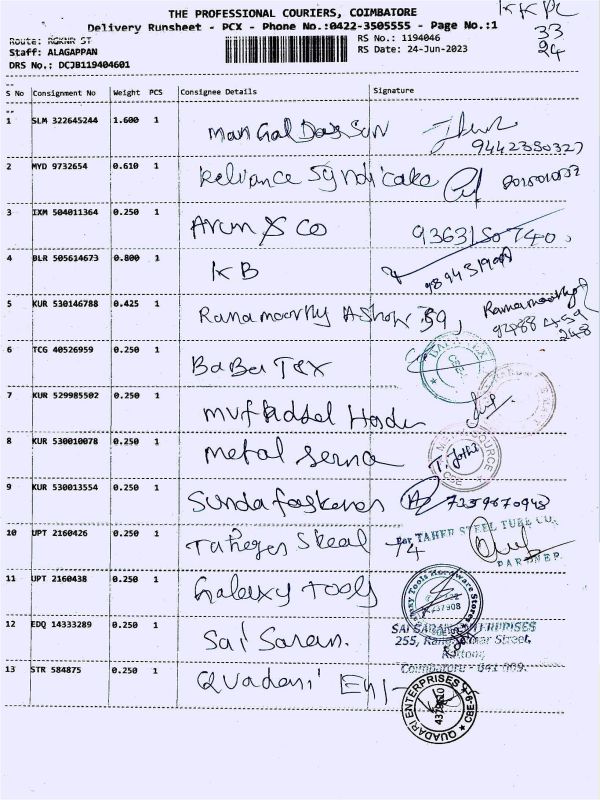 THE PROFESSIONAL COURIERS, COIMBATORE
Delivery Runsheet - PCX - Phone No.:0422-3505555 - Page No.:1
KKPL
33
24
Route: RGKNR ST
Staff: ALAGAPPAN
DRS No.: DCJB119404601
RS No.: 1194046
RS Date: 24-Jun-2023
S No Consignment No Weight PCS Consignee Details Signature
1 SLM 322645244 1.600 1 Mangal Das Son
9442350327
2 MYD 9732654 0.610 1 Reliance Syndicate
3 IXM 504011364 0.250 1 Arun & Co 9363150740
4 BLR 505614673 0.800 1 KB
5 KUR 530146788 0.425 1 Ramamoorthy Ashok 59, Ramamoorthy
248
6 TCG 40526959 0.250 1 BaBa Tex
7 KUR 529985502 0.250 1
8 KUR 530010078 0.250 1 Metal Serna T. Jothi
9 KUR 530013554 0.250 1 7359670948
10 UPT 2160426 0.250 1 74 For TAHER STEEL TUBE CO.
PARTNER
11 UPT 2160438 0.250 1 Galaxy Tools
12 EDQ 14333289 0.250 1 Sai Saran. SAI SARAN ENTERPRISES
255,
Street,
Kattoor,
Coimbatore - 641 009.
13 STR 584875 0.250 1 Quadari Ent
QUADARI ENTERPRISES
CBE-9